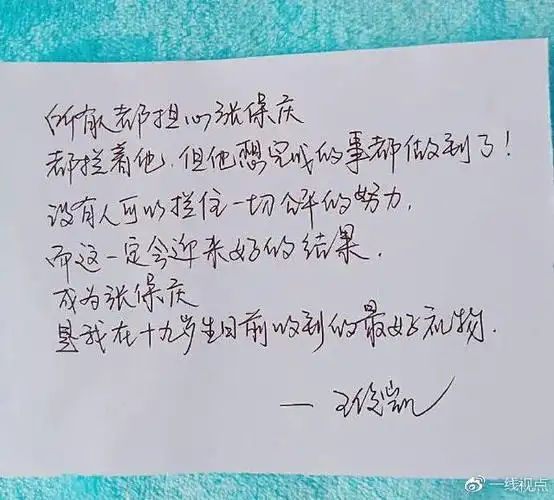 所有人都担心张保庆
都拦着他.但他想完成的事都做到了!
没有人可以拦住一切公平的努力,
而这一定会迎来好的结果.
成为张保庆
是我在十九岁生日前收到的最好礼物.
—王俊凯
一线视点